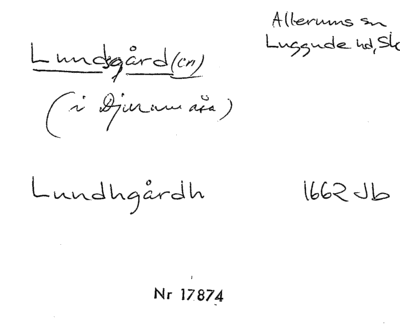 Allerums sn
Luggude hd, Sk
Lundsgård (en)
(i Djurmuåsa)
Lundhgårdh 1662 Jb
Nr 17874